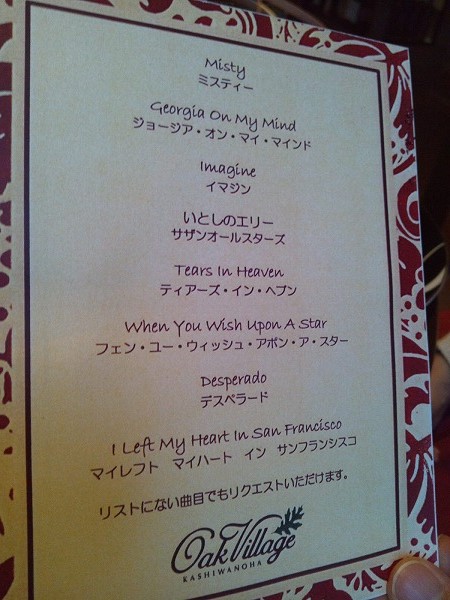 Misty
ミスティー
Georgia On My Mind
ジョージア・オン・マイ・マインド
Imagine
イマジン
いとしのエリー
サザンオールスターズ
Tears In Heaven
ティアーズ・イン・ヘブン
When You Wish Upon A Star
フェン・ユー・ウィッシュ・アポン・ア・スター
Desperado
デスペラード
I Left My Heart In San Francisco
マイレフト マイハート イン サンフランシスコ
リストにない曲目でもリクエストいただけます。
Oak Village
KASHIWANOHA